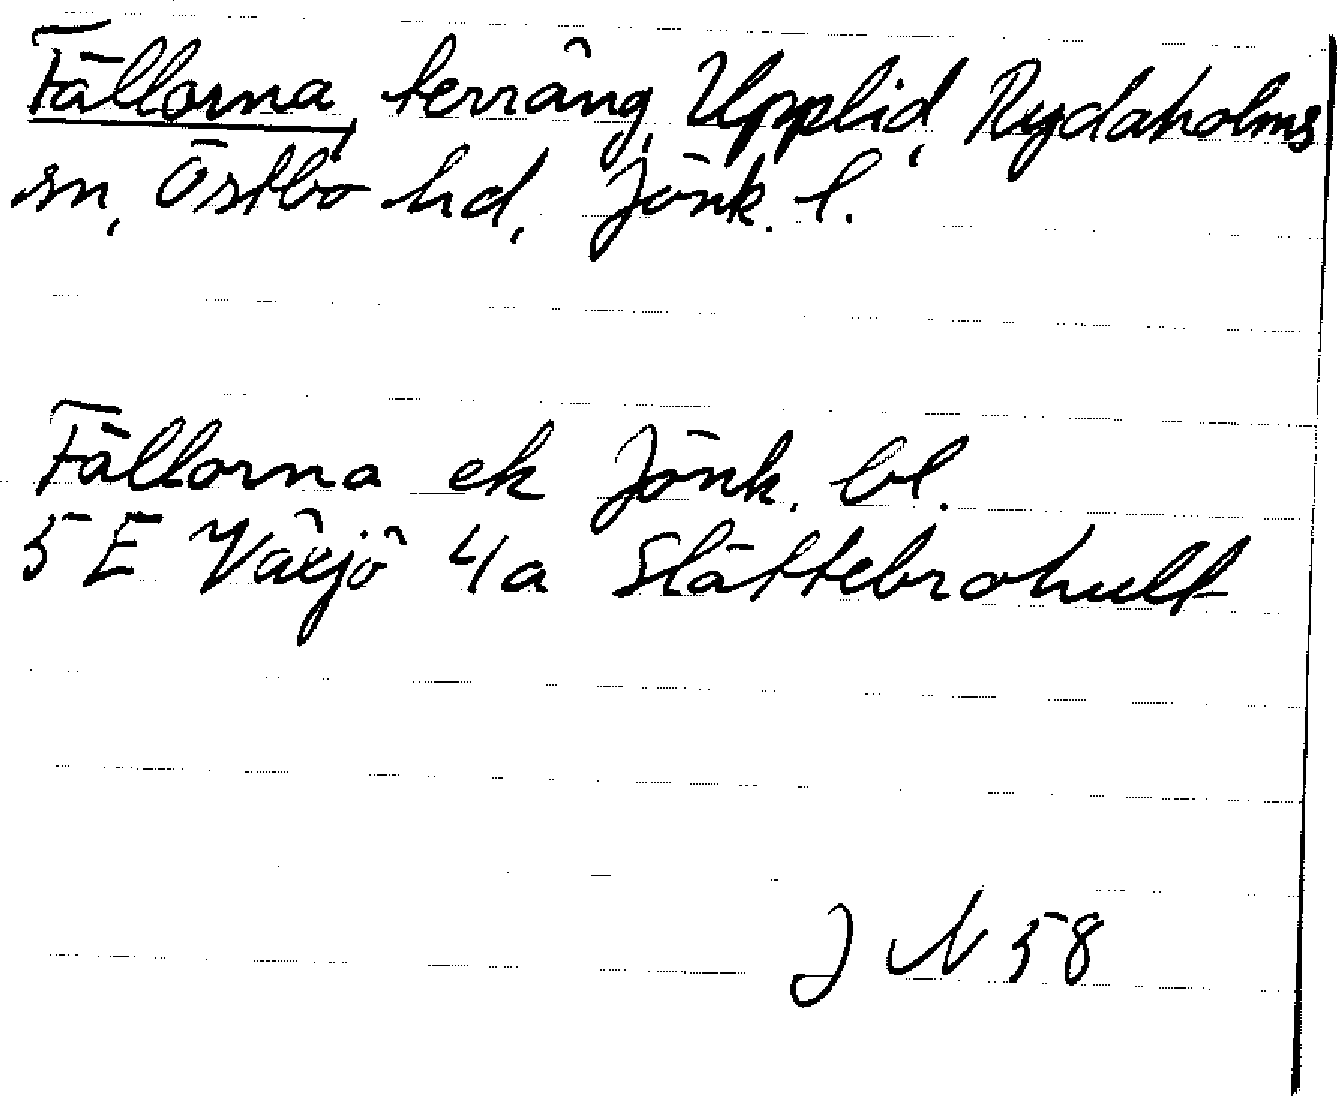 Fällorna, terräng, Upplid, Rydaholms
sn, Östbo hd, Jönk. l.
Fällorna ek Jönk. bl.
5 E Växjö 4a Slättebrohult
J N 58